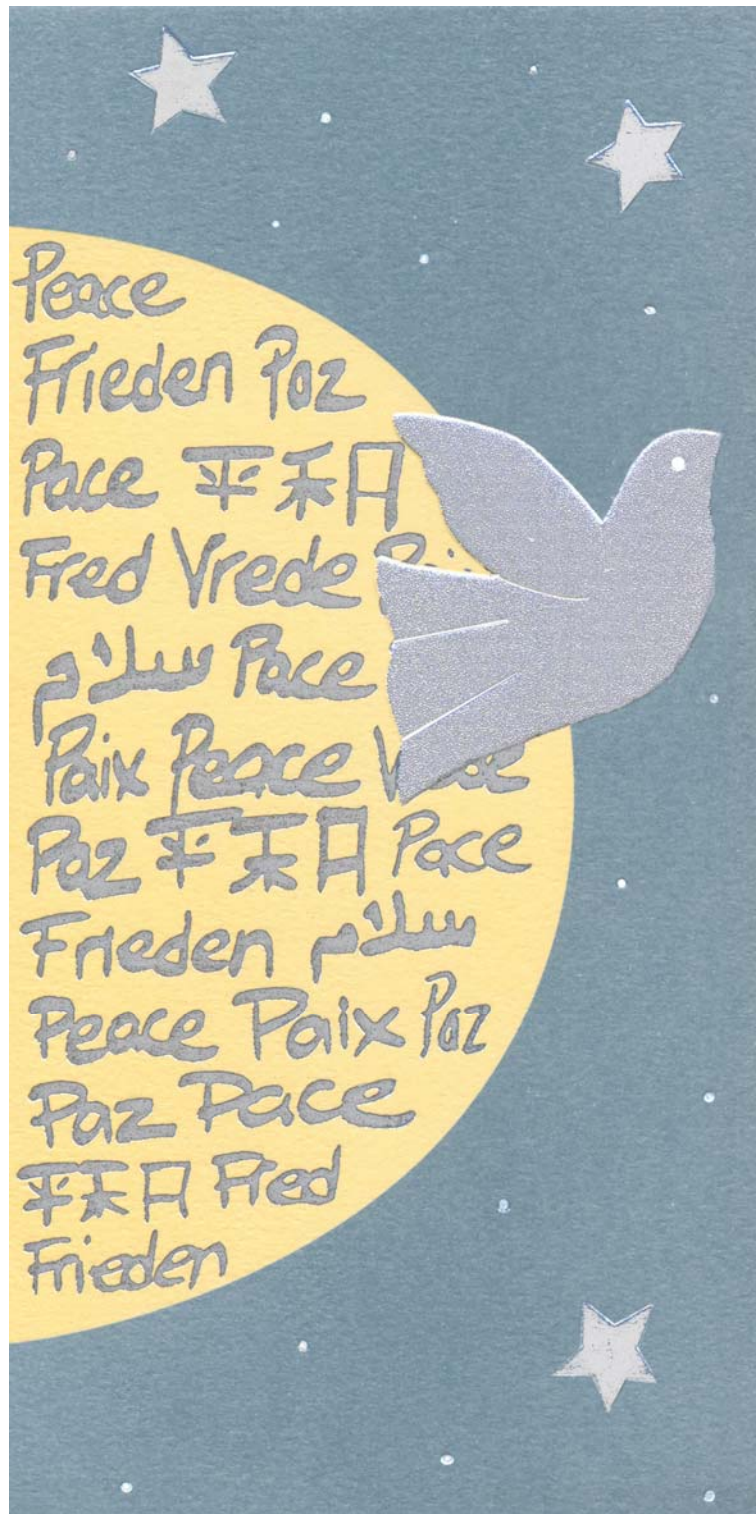 Peace
Frieden Paz
Pace 平和
Fred Vrede
سلام Pace
Paix Peace
Paz 平和 Pace
Frieden سلام
Peace Paix Paz
Paz Pace
平和 Fred
Frieden